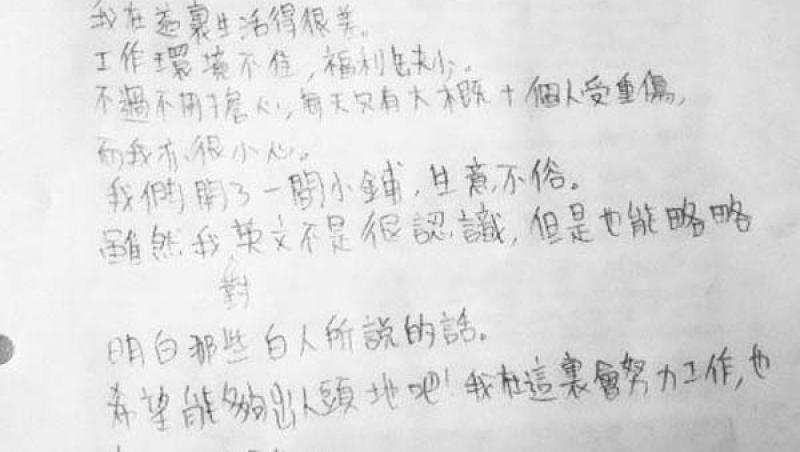 我在這裏生活得很美。
工作環境不佳，福利缺少。
不過不用擔心，每天只有大概十個人受重傷，
而我亦很小心。
我們開了一間小鋪，生意不俗。
雖然我英文不是很認識，但是也能略略
對
明白那些白人所說的話。
希望能夠出人頭地吧！我在這裏會努力工作，也